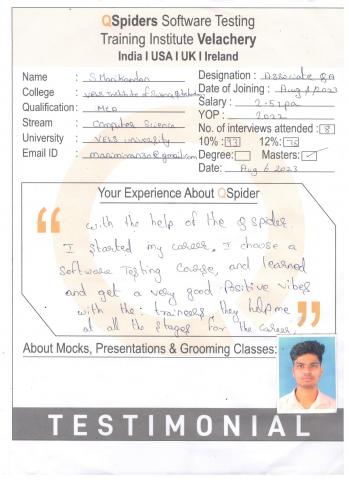 QSpiders Software Testing
Training Institute Velachery
India I USA I UK I Ireland
Name : S.Manikandan
Designation : Associate QA
College : VELS Institute of Science &
Date of Joining : Aug
Salary :
Qualification: MCA
YOP : 2022
Stream : Computer Science
No. of interviews attended : 8
University : VELS University
10% : 12% :
Email ID :
Degree: Masters: ✓
Date: Aug 6 2023
Your Experience About QSpider
“ with the help of the Q spider.
I started my career. I choose a
Software Testing Carse, and learned
and get a very good Positive vibes
with the : traineers they help me
at all the stages for the career. ”
About Mocks, Presentations & Grooming Classes:
TESTIMONIAL